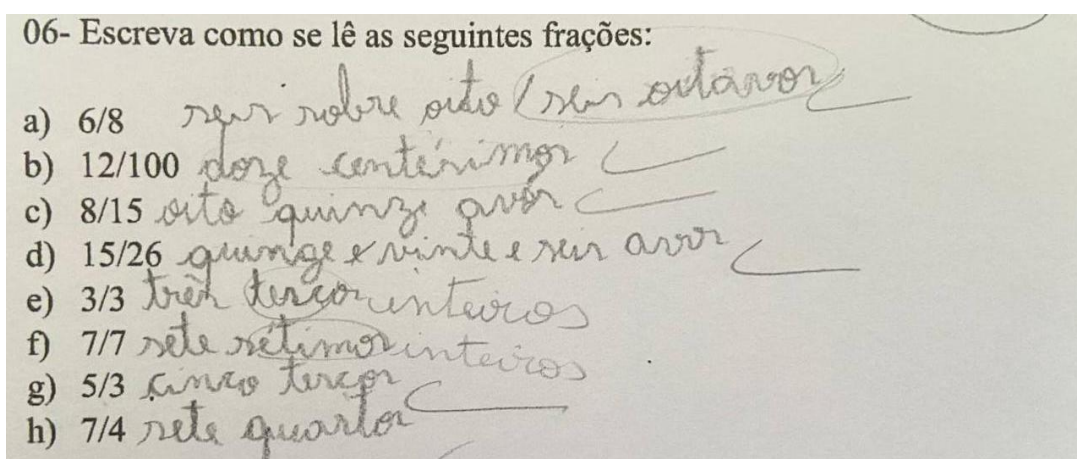 06- Escreva como se lê as seguintes frações:
a) 6/8 seis sobre oito / seis oitavos
b) 12/100 doze centésimos
c) 8/15 oito quinze avos
d) 15/26 quinze e vinte e seis avos
e) 3/3 três terços inteiros
f) 7/7 sete sétimos inteiros
g) 5/3 cinco terços
h) 7/4 sete quartos